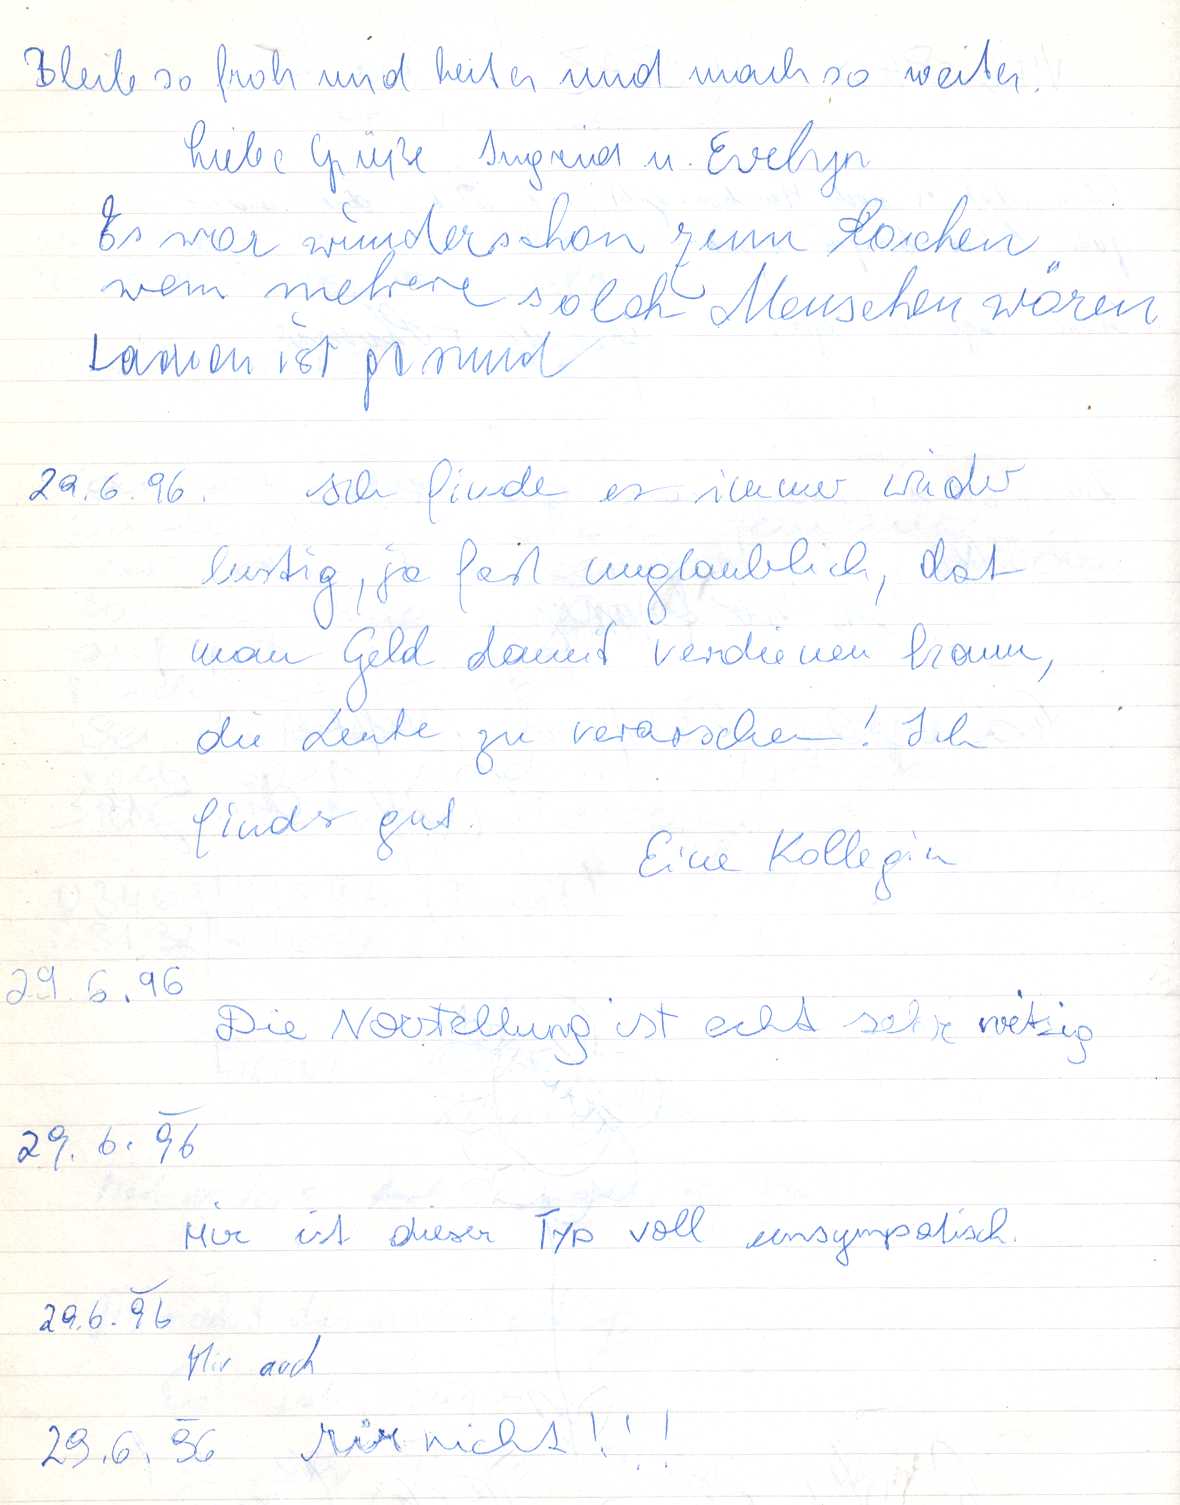 Bleibe so froh und heiter und mach so weiter.
Liebe Grüße Ingrid u. Evelyn
Es war wünderschon zum
wem mehrere solch Menschen wären
ist gesund
29.6.96. Ich finde es immer wieder
lustig, ja fast unglaublich, dat
man Geld damit verdienen kann,
die Leute zu verarschen! Ich
finds gut.
Eine Kollegin
29.6.96
Die Vorstellung ist echt sehr witzig
29.6.96
Mir ist dieser Typ voll unsympatisch.
29.6.96
Mir auch
29.6.96 Mir nicht!!!